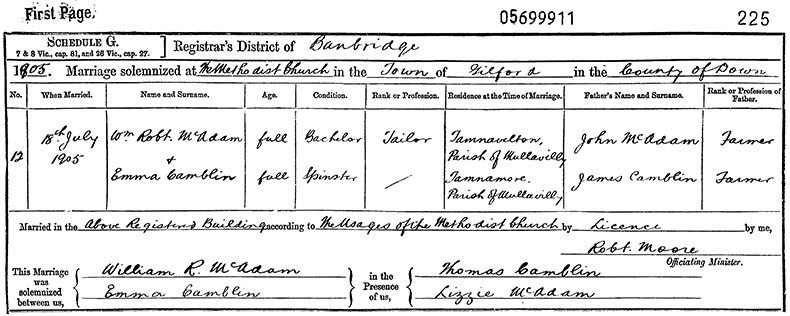 First Page. 05699911 225
SCHEDULE G.
7 & 8 Vic., cap. 81, and 26 Vic., cap. 27.
Registrar's District of Banbridge
1905. Marriage solemnized at the Methodist Church in the Town of Gilford in the County of Down
No. When Married. Name and Surname. Age. Condition. Rank or Profession. Residence at the Time of Marriage. Father's Name and Surname. Rank or Profession of Father.
12 18th July 1905 Wm Robt. McAdam full Bachelor Tailor Tamnavelton, Parish of Mullavilly John McAdam Farmer
& Emma Camblin full Spinster Tamnamore, Parish of Mullavilly James Camblin Farmer
Married in the above Registered Building according to the Usages of the Methodist Church by Licence by me,
Robt. Moore
Officiating Minister.
This Marriage was solemnized between us, William R. McAdam
Emma Camblin
in the Presence of us, Thomas Camblin
Lizzie McAdam